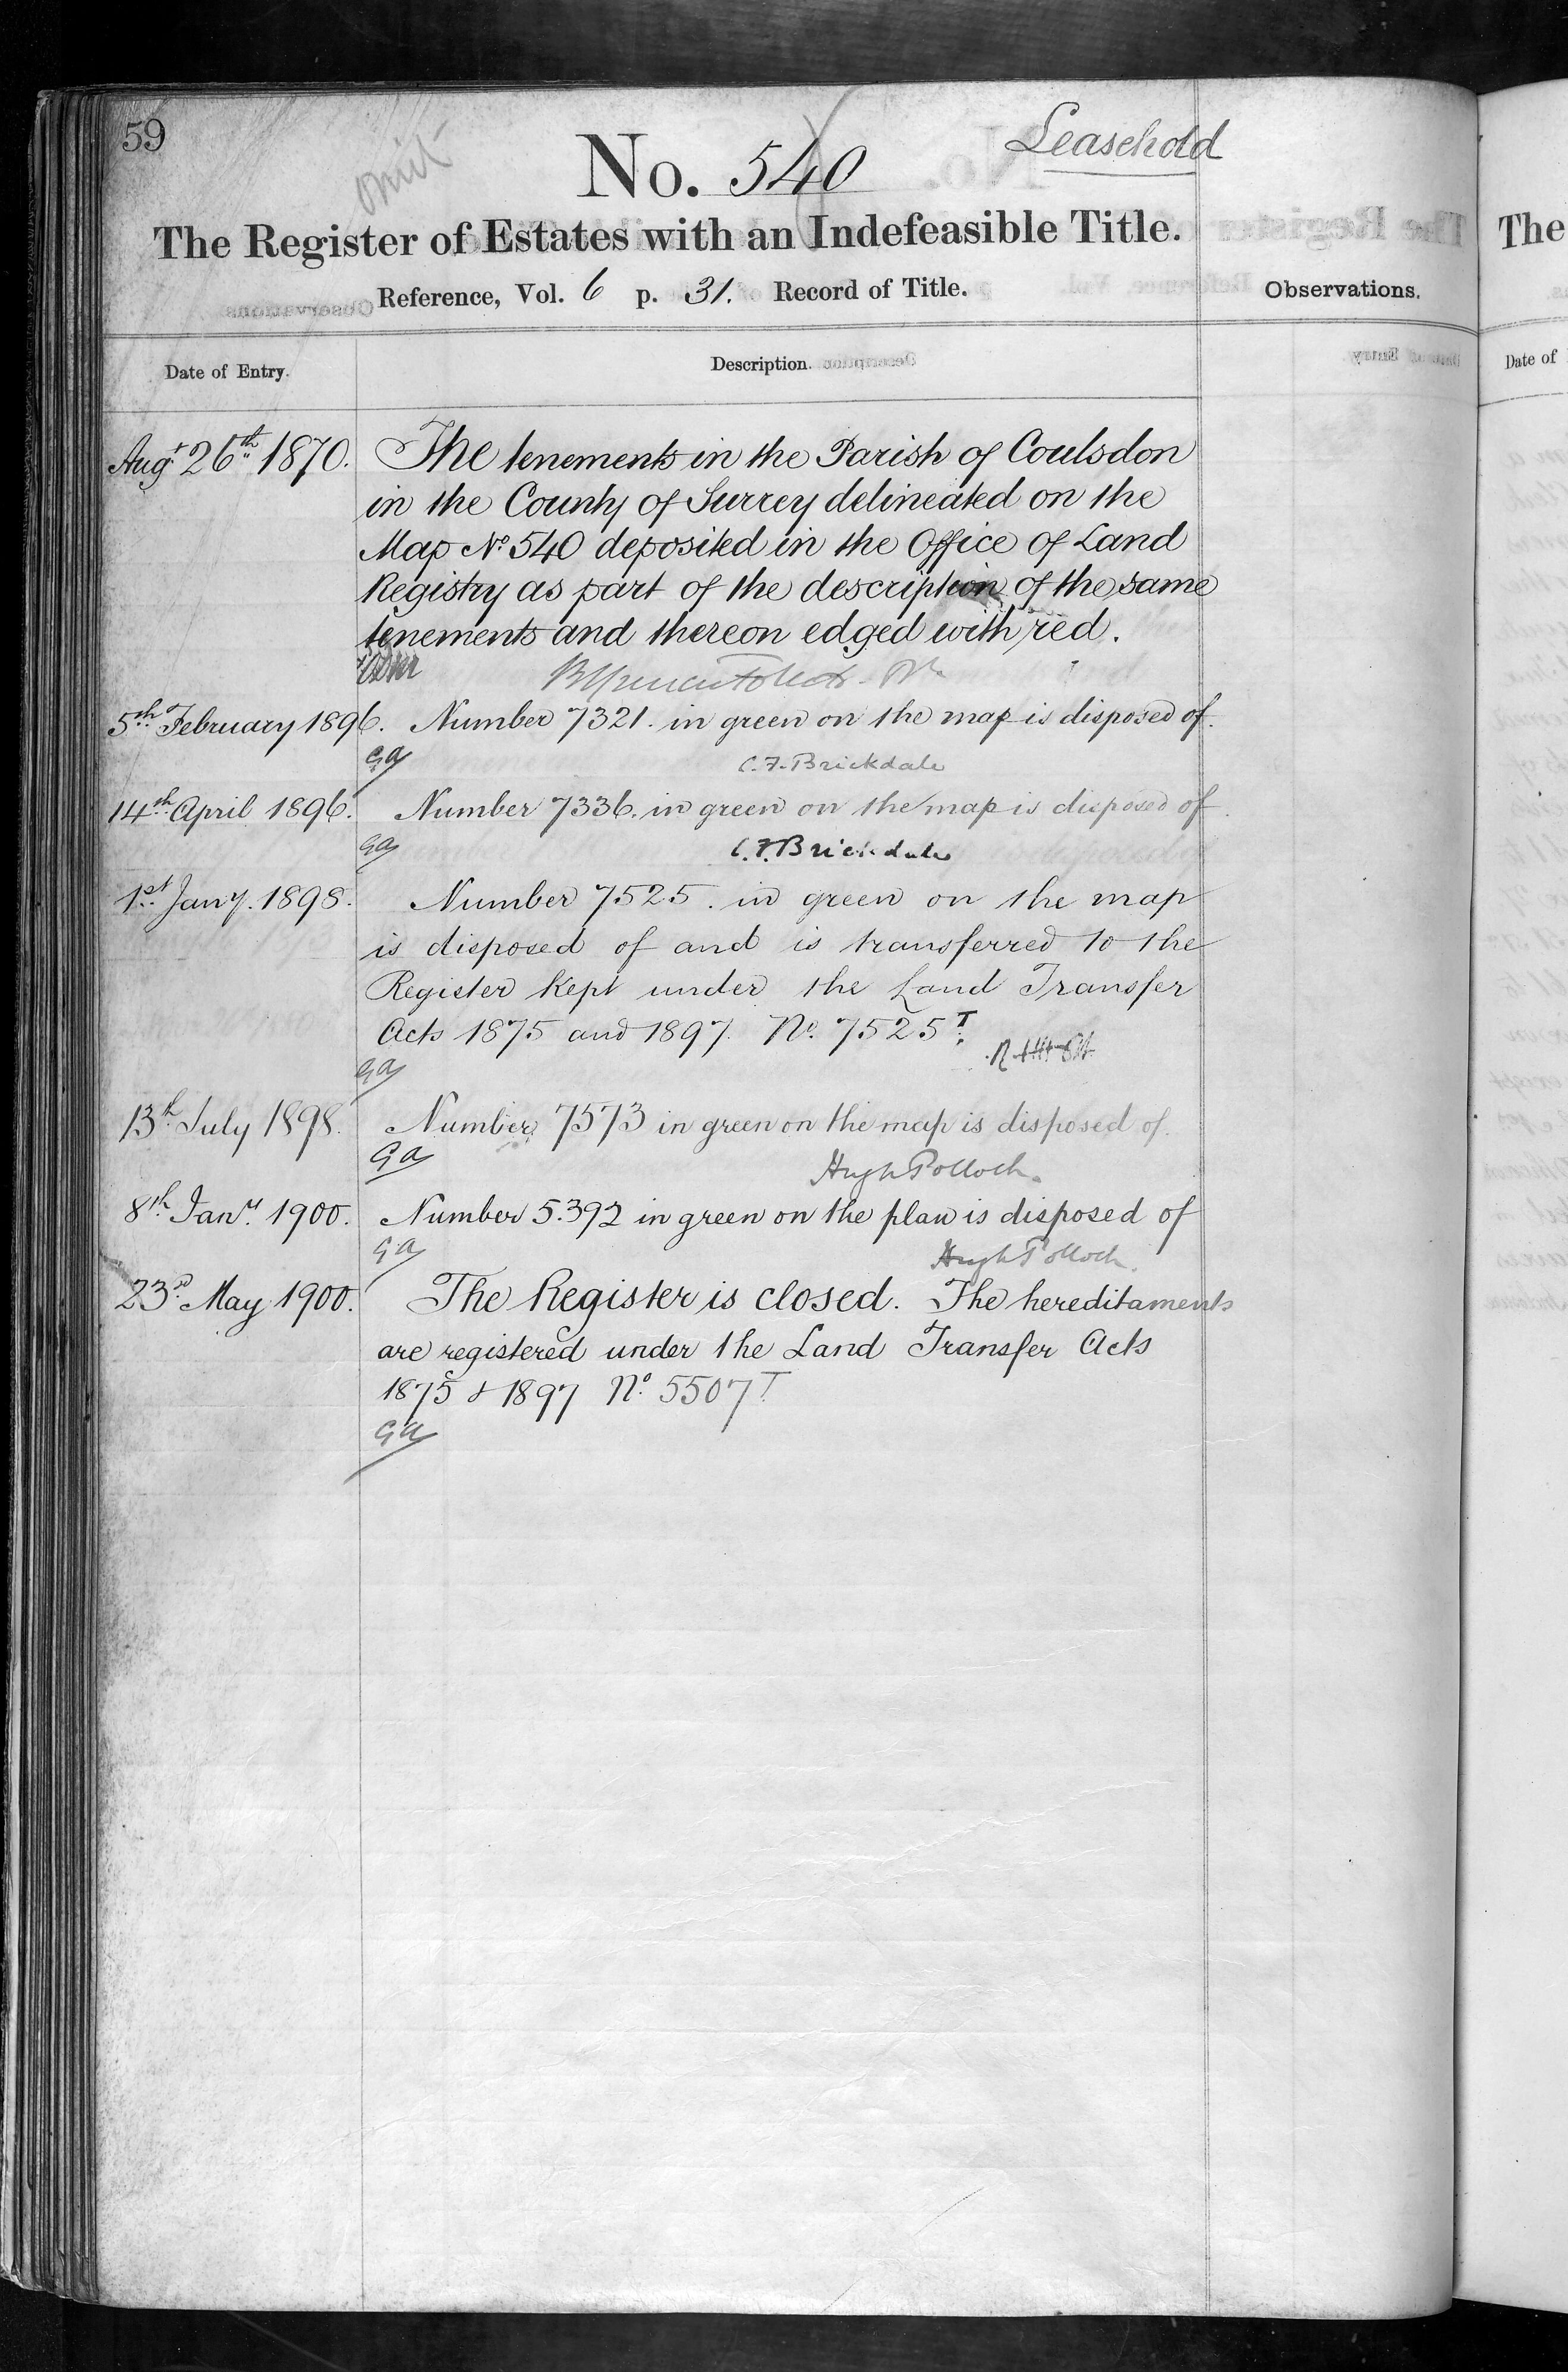 59
omit
Leasehold
No. 540
The Register of Estates with an Indefeasible Title.
Reference, Vol. 6 p. 31. Record of Title.
Observations.
Date of Entry.
Description.
Augt 26th 1870. The tenements in the Parish of Coulsdon
in the County of Surrey delineated on the
Map No. 540 deposited in the Office of Land
Registry as part of the description of the same
tenements and thereon edged with red.
5th February 1896. Number 7321. in green on the map is disposed of.
GA C. F. Brickdale
14th April 1896. Number 7336. in green on the map is disposed of.
GA C. F. Brickdale
1st Jany. 1898. Number 7525. in green on the map
is disposed of and is transferred to the
Register kept under the Land Transfer
Acts 1875 and 1897. No. 7525T.
GA
13th July 1898. Number 7573 in green on the map is disposed of.
GA Hugh Pollock.
8th Jany. 1900. Number 5392 in green on the plan is disposed of
GA Hugh Pollock.
23rd May 1900. The Register is closed. The hereditaments
are registered under the Land Transfer Acts
1875 & 1897 No. 5507T.
GA
The
Date of